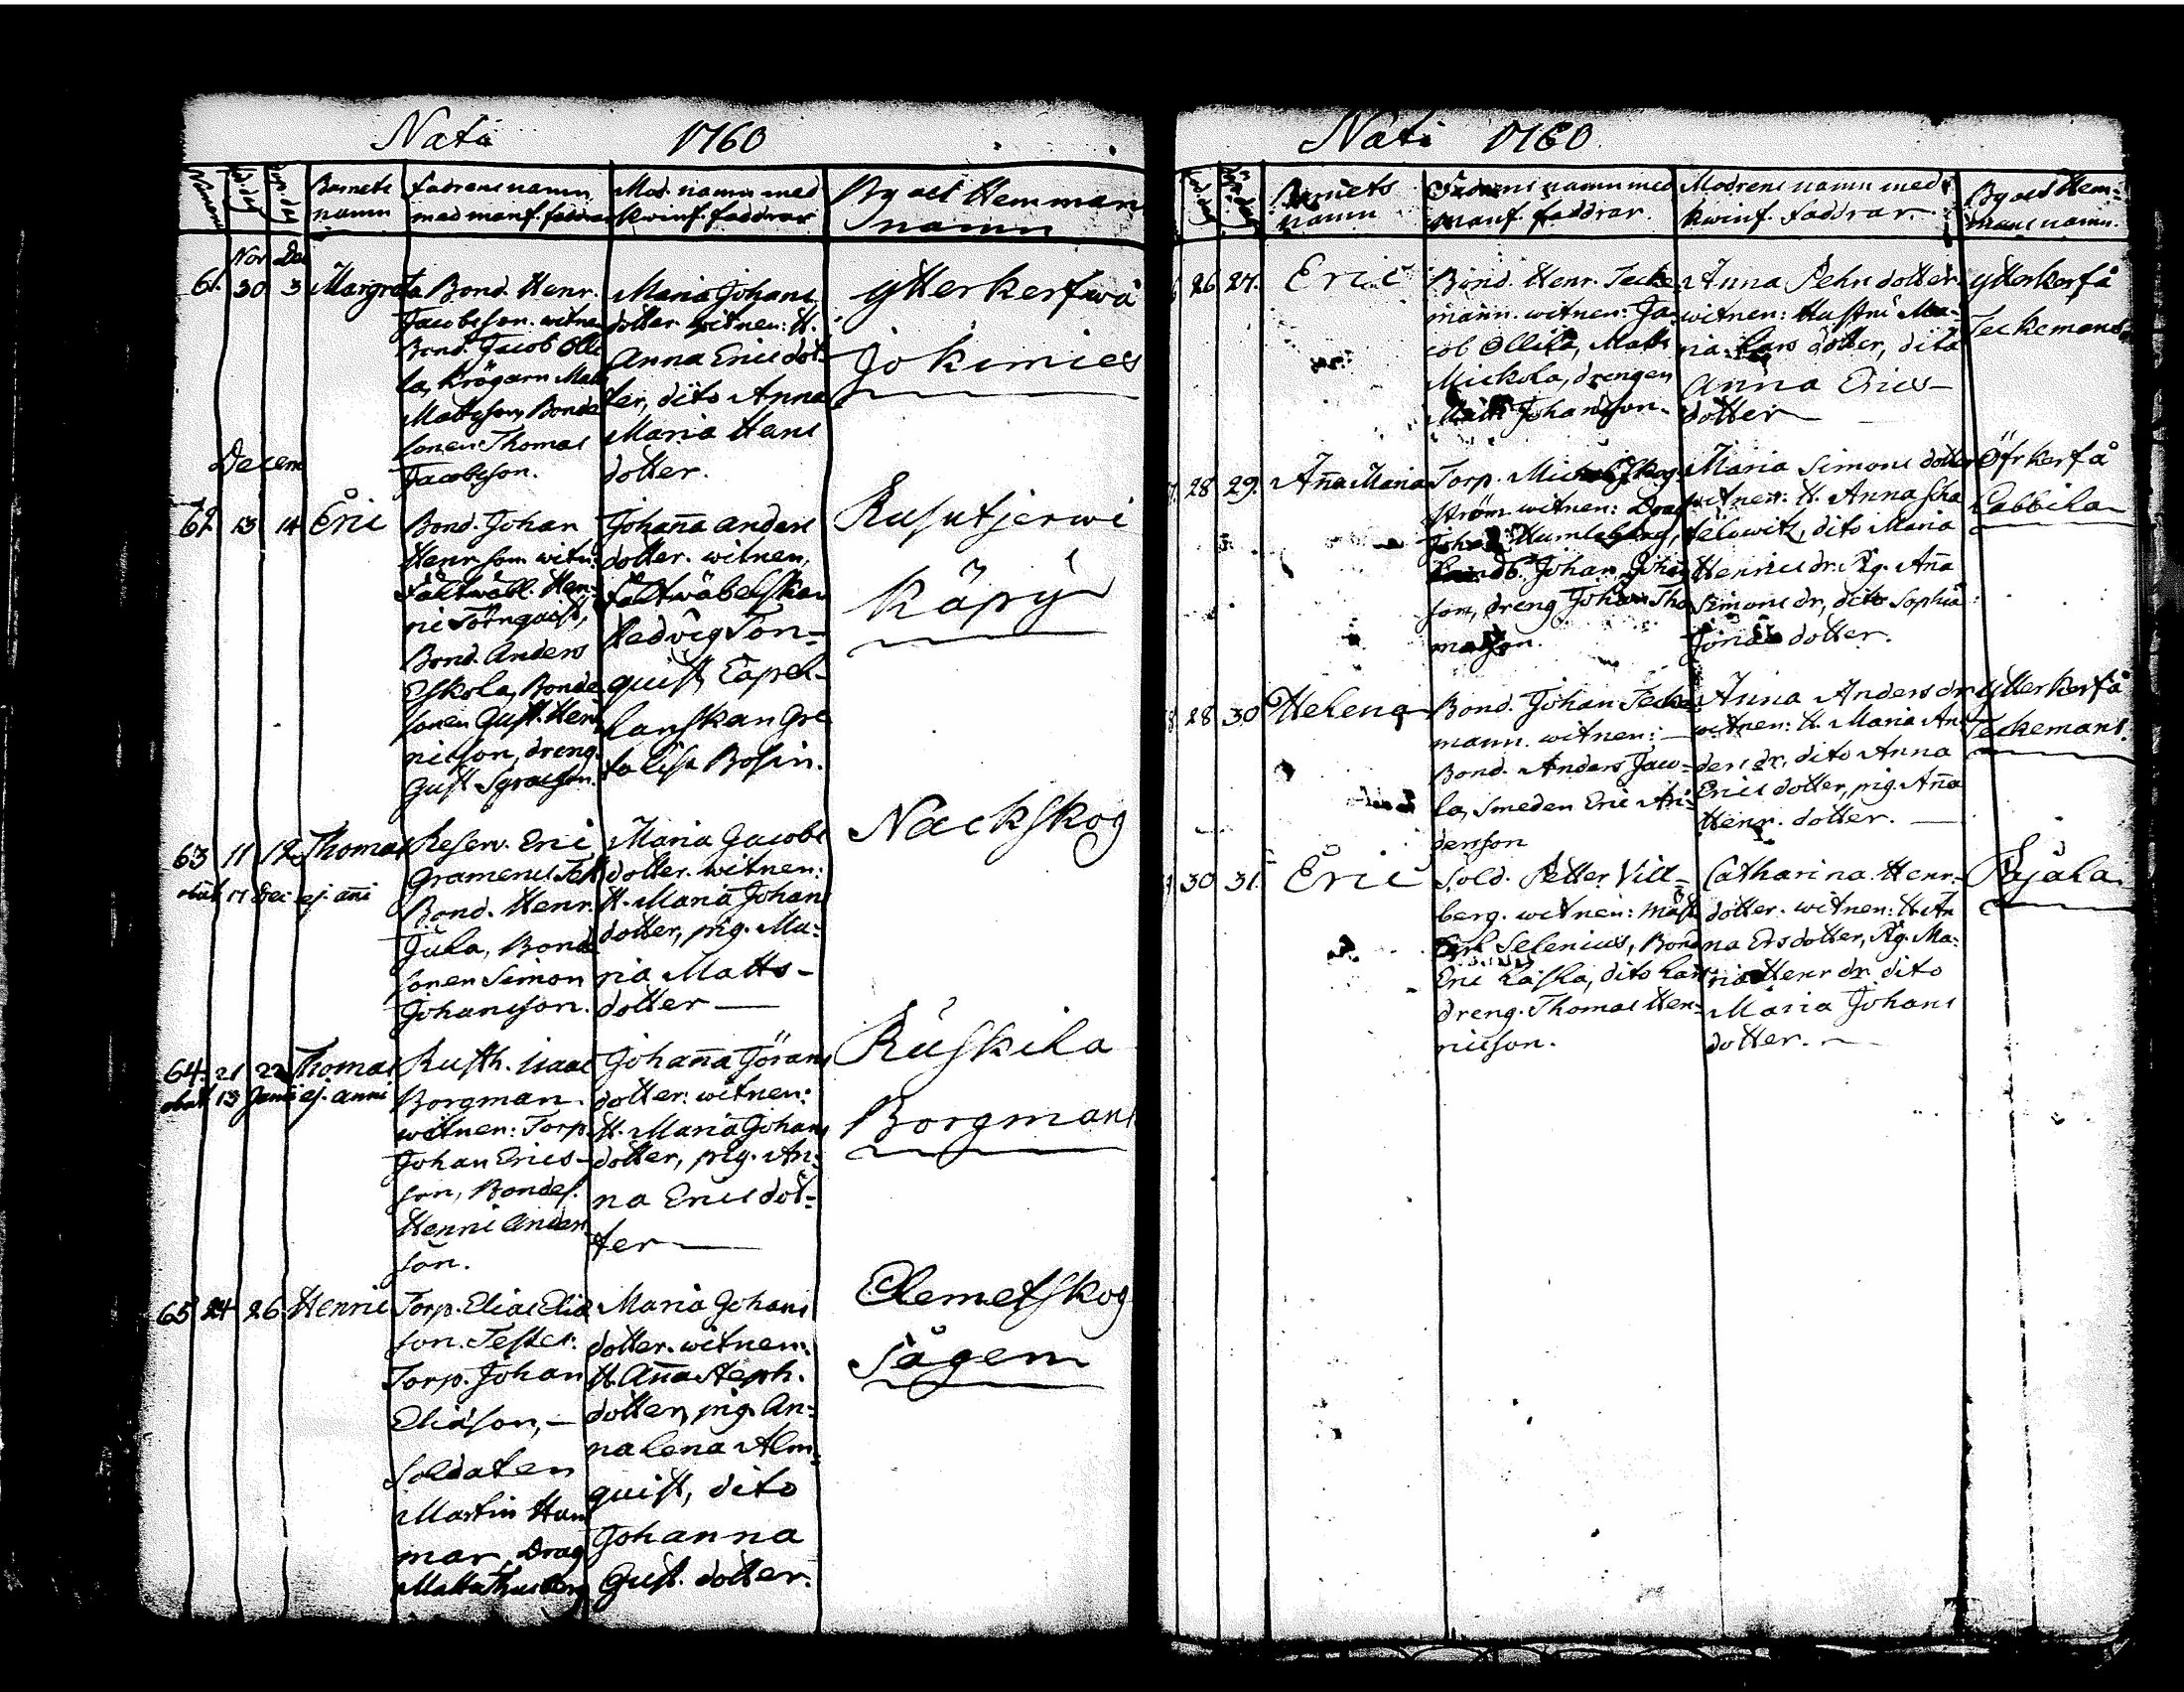 Nati 1760
Barnets namn
fadrens namn med manf. faddrar
Mod. namn med kvinf. faddrar
By och Hemmans namn
Nov Dec
61. 30 3 Margreta
Bond. Henr.
Jacobsson. witne
Bond. Jacob Olli
la, Krögarn Matt
Mattsson, Bonde
sonen Thomas
Jacobsson.
Maria Johans
dotter. witnen: H.
Anna Erics dot
ter, dito Anna
Maria Hans
dotter.
ytterkerfwå
Jokimies
Decem
62. 13 14 Eric
Bond. Johan
Henrsson witn:
Fältwäbl. Hen
ric Törnquist,
Bond. Anders
Eskola, Bonde
sonen Gust. Hen
ricsson, dreng.
Gust
Johan̄a Anders
dotter. witnen,
fältwäbelskan
Hedvig Törn=
quist,
lanskan Gre
ta Lisa Bosin.
Rusutjerwi
Käpy
63 11 12 Thomas
obiit 17 Dec ej. an̄i
Reserv. Eric
Gramenus Test
Bond. Henr.
Jula, Bond
sonen Simon
Johansson.
Maria Jacobs
dotter. witnen:
H. Maria Johans
dotter, pig. Ma:
ria Matts-
dotter —
Nackskog
64. 21 22 Thomas
obiit 13 ej. anni
Rusth. Isaac
Borgman.
witnen: Torp.
Johan Erics-
son, Bondes.
Henric Anders
son.
Johan̄a Görans
dotter: witnen:
H. Maria Johans
dotter, pig. An:
na Erics dot=
ter —
Ruskila
Borgmans
65 24 26 Henric
Torp. Elias Elia
son. Testes:
Torp. Johan
Eliasson, —
Soldaten
Martin Ham
mar, Drag
Matts
Maria Johans
dotter. witnen:
H. An̄a Steph.
dotter, pig. An:
na Lena Alm=
quist, dito
Johanna
Gust. dotter.
Clemetskog
Sågem
Nati 1760.
Barnets namn
Fadrens namn med manf. faddrar.
Modrens namn med kwinf. faddrar.
By och Hem=mans namn.
26 27. Eric
Bond. Henr. Tecke
mann. witnen: Ja=
cob Ollila, Matts
Mickola, drengen
Matts Johansson.
Anna Pehrs dotter
witnen: Hustru Ma=
ria Lars dotter, dito
Anna Erics—
dotter —
ytterkerfå
Teckemans
28 29. An̄a Maria
Torp. Mich. Skog
ström witnen: Drag
Johan Humleberg,
Johan Johans
son, dreng Johan Tho
masson.
Maria Simons dotter
witnen: H. Anna
dito Maria
Henrics dr. Pig. An̄a
Simons dr, dito Sophia
Jonas dotter.
Öfrkerfå
Labbila
28 30 Helena
Bond. Johan Tecke
mann. witnen: —
Bond. Anders Jaco=
la, Smeden Eric An=
dersson
Anna Anders dr
witnen: H. Maria An=
ders dr, dito Anna
Erics dotter, pig. An̄a
Henr. dotter. —
ytterkerfå
Teckemans.
30 31. Eric
Sold. Petter Vill=
berg. witnen: Mäst
Selenius, Bond
Eric Laska, dito Lars
dreng. Thomas Hen=
ricsson.
Catharina Henr.
dotter. witnen: H. An
na Ersdotter, Pig. Ma:
ria Henr dr dito
Maria Johans
dotter. —
Kyälä